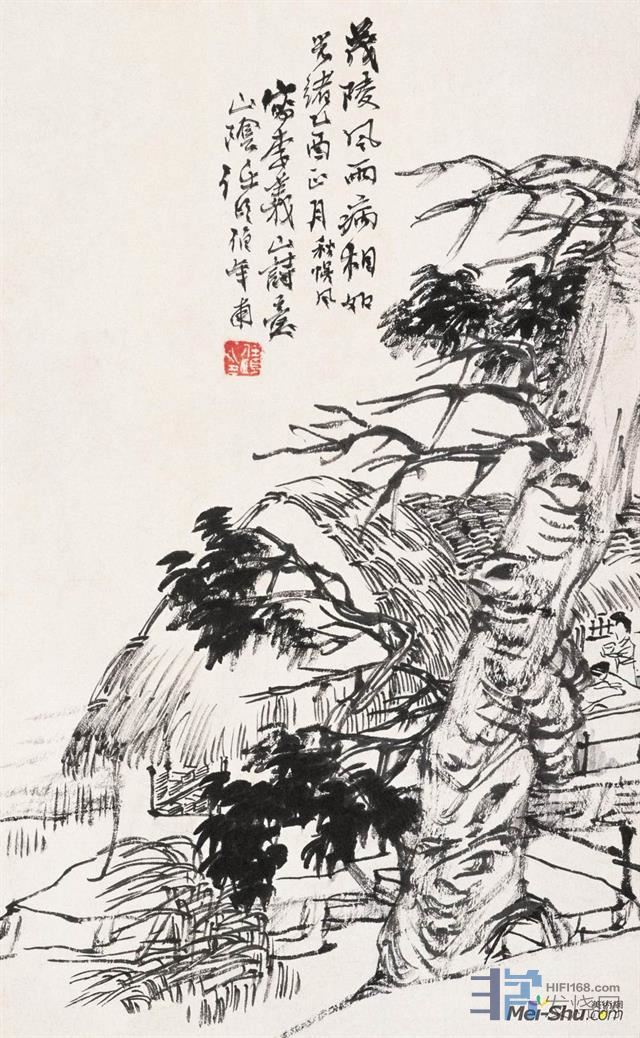 茂陵風雨病相如
光緒乙酉正月秋風
寫李義山詩意
山陰任頤伯年甫
HIFI168.com
Mei-Shu.com